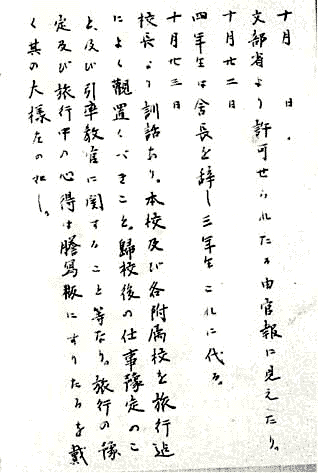 十月　　日.
文部省より許可せられたる由官報に見えたり。
十月廿二日
四年生は舎長を辞し三年生これに代る。
十月廿三日
校長より訓話あり。本校及び各附属校を旅行
によく観置くべきこと。歸校後の仕事豫定のこ
と、及び引率教官に関すること等なり。旅行の豫
定及び旅行中の心得は謄寫版にすりたるを戴
く其の大様左の如し。